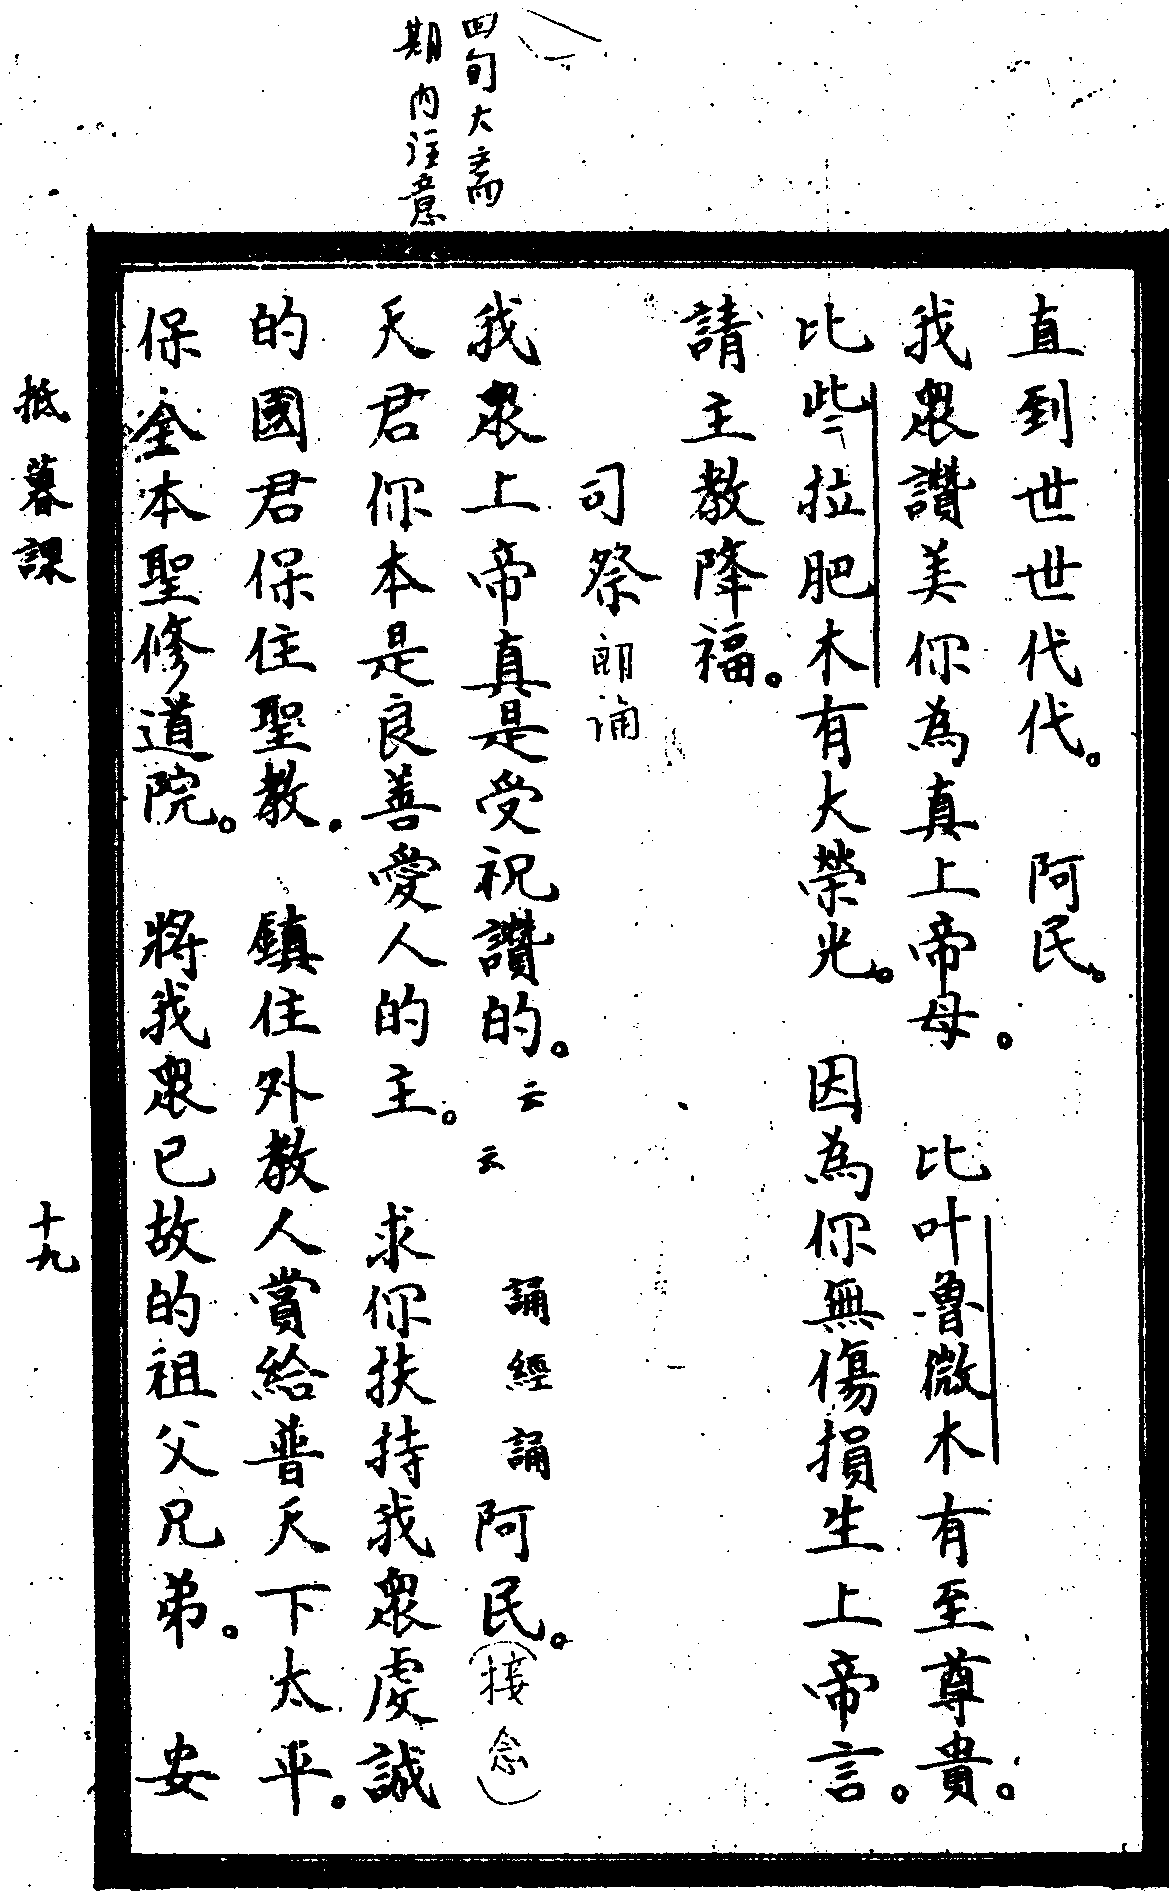 四旬大齋
期内注意
直到世世代代。　阿民。
我眾讚美你為真上帝母。　比叶魯微木有至尊貴。
比些拉肥木有大榮光。　因為你無傷損生上帝言。
請主教降福。
司祭朗誦
我眾上帝真是受祝讚的。云云　誦經誦阿民。（接念）
天君你本是良善愛人的主。　求你扶持我眾虔誠
的國君保住聖教。　鎮住外教人賞給普天下太平。
保全本聖修道院。　將我眾已故的祖父兄弟。　安
抵暮課
十九